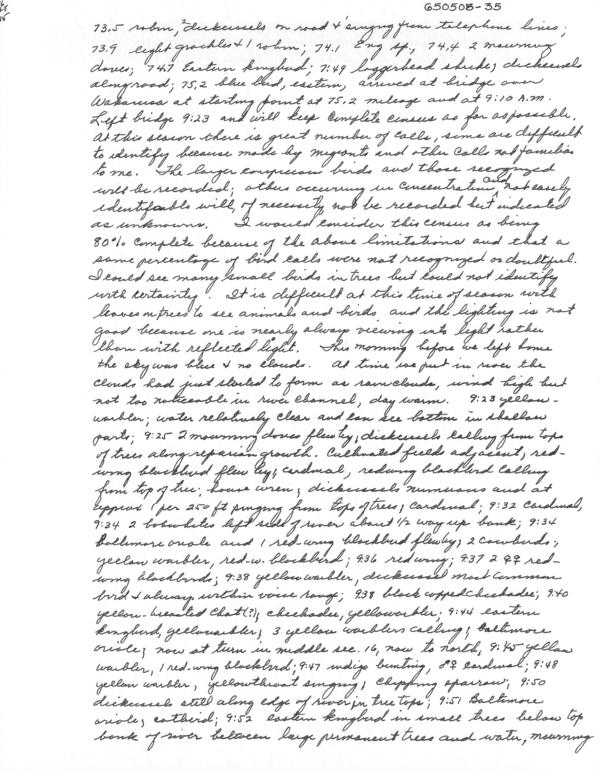 650508-35
73.5 robin, 2 dickcissels on road & singing from telephone lines;
73.9 eight grackles & 1 robin; 74.1 Eng sp., 74.4 2 mourning
doves; 74.7 Eastern kingbird; 7:49 loggerhead shrike; dickcissels
along road; 75.2 blue bird, eastern, arrived at bridge over
Wakarusa at starting point at 75.2 mileage and at 9:10 A.M.
Left bridge 9:23 and will keep complete census as far as possible.
At this season there is great number of calls, some are difficult
to identify because made by migrants and other calls not familiar
to me. The larger conspicuous birds and those recognized
will be recorded; others occurring in concentrations and not easily
identifiable will, of necessity, not be recorded but indicated
as unknowns. I would consider this census as being
80% complete because of the above limitations and that a
same percentage of bird calls were not recognized or doubtful.
I could see many small birds in trees but could not identify
with certainty. It is difficult at this time of season with
leaves on trees to see animals and birds and the lighting is not
good because one is nearly always viewing into light rather
than with reflected light. This morning before we left home
the sky was blue & no clouds. At time we put in river the
clouds had just started to form as rain clouds, wind high but
not too noticeable in river channel, day warm. 9:23 yellow-
warbler; water relatively clear and can see bottom in shallow
parts; 9:25 2 mourning doves flew by; dickcissels calling from tops
of trees along reparian growth. Cultivated fields adjacent, red-
wing blackbird flew by, cardinal, redwing blackbird calling
from top of tree, house wren; dickcissels numerous and at
approx 1 per 250 ft singing from tops of trees; cardinal; 9:32 cardinal,
9:34 2 bobwhites left side of river about 1/2 way up bank; 9:34
Baltimore oriole and 1 red-wing blackbird flew by; 2 cowbirds,
yellow warbler, red-w. blackbird; 936 redwing; 937 2 ♀♀ red-
wing blackbirds; 9:38 yellow warbler, dickcissel most common
bird & always within voice range; 938 black capped chickadee; 9:40
yellow-breasted chat(?); chickadee, yellow warbler; 9:44 eastern
kingbird, yellow warbler; 3 yellow warblers calling; baltimore
oriole; now at turn in middle sec. 16, now to north, 9:45 yellow
warbler, 1 red-wing blackbird; 9:47 indigo bunting, ♂♀ cardinal; 9:48
yellow warbler, yellowthroat singing; chipping sparrow; 9:50
dickcissels still along edge of river in tree tops; 9:51 Baltimore
oriole; catbird; 9:52 eastern kingbird in small trees below top
bank of river between large permanent trees and water, mourning